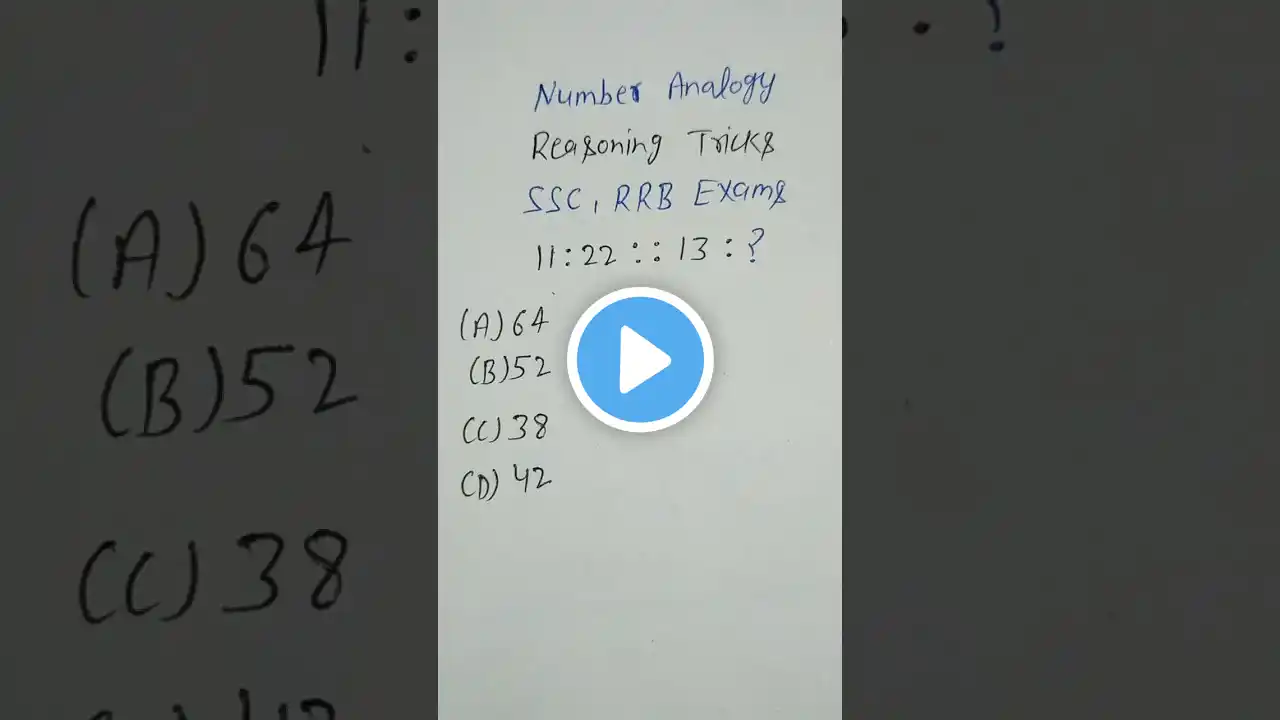 Number Analogy
Reasoning Tricks
SSC, RRB Exams
11:22::13:?
(A) 64
(B) 52
(C) 38
(D) 42